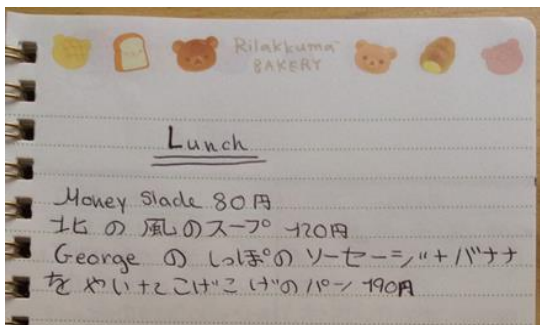 Rilakkuma
BAKERY
Lunch
Money Slade 80円
北の風のスープ 120円
Georgeのしっぽのソーセージ+バナナ
をやいたこげこげのパン 190円